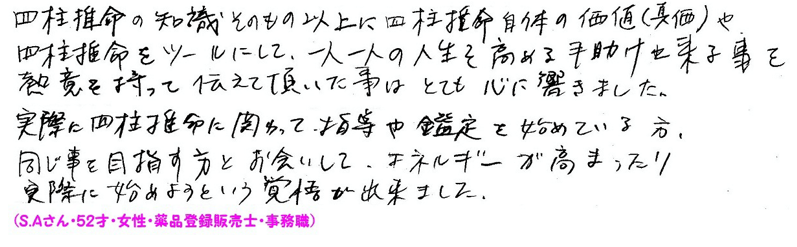 四柱推命の知識そのもの以上に四柱推命自体の価値(真価)や
四柱推命をツールにして、一人一人の人生を高める手助け出来る事を
熱意を持って伝えて頂いた事はとても心に響きました。
実際に四柱推命に関わって、指導や鑑定を始めている方、
同じ事を目指す方とお会いして、エネルギーが高まったり
実際に始めようという覚悟が出来ました。
(S.Aさん・52才・女性・薬品登録販売士・事務職)